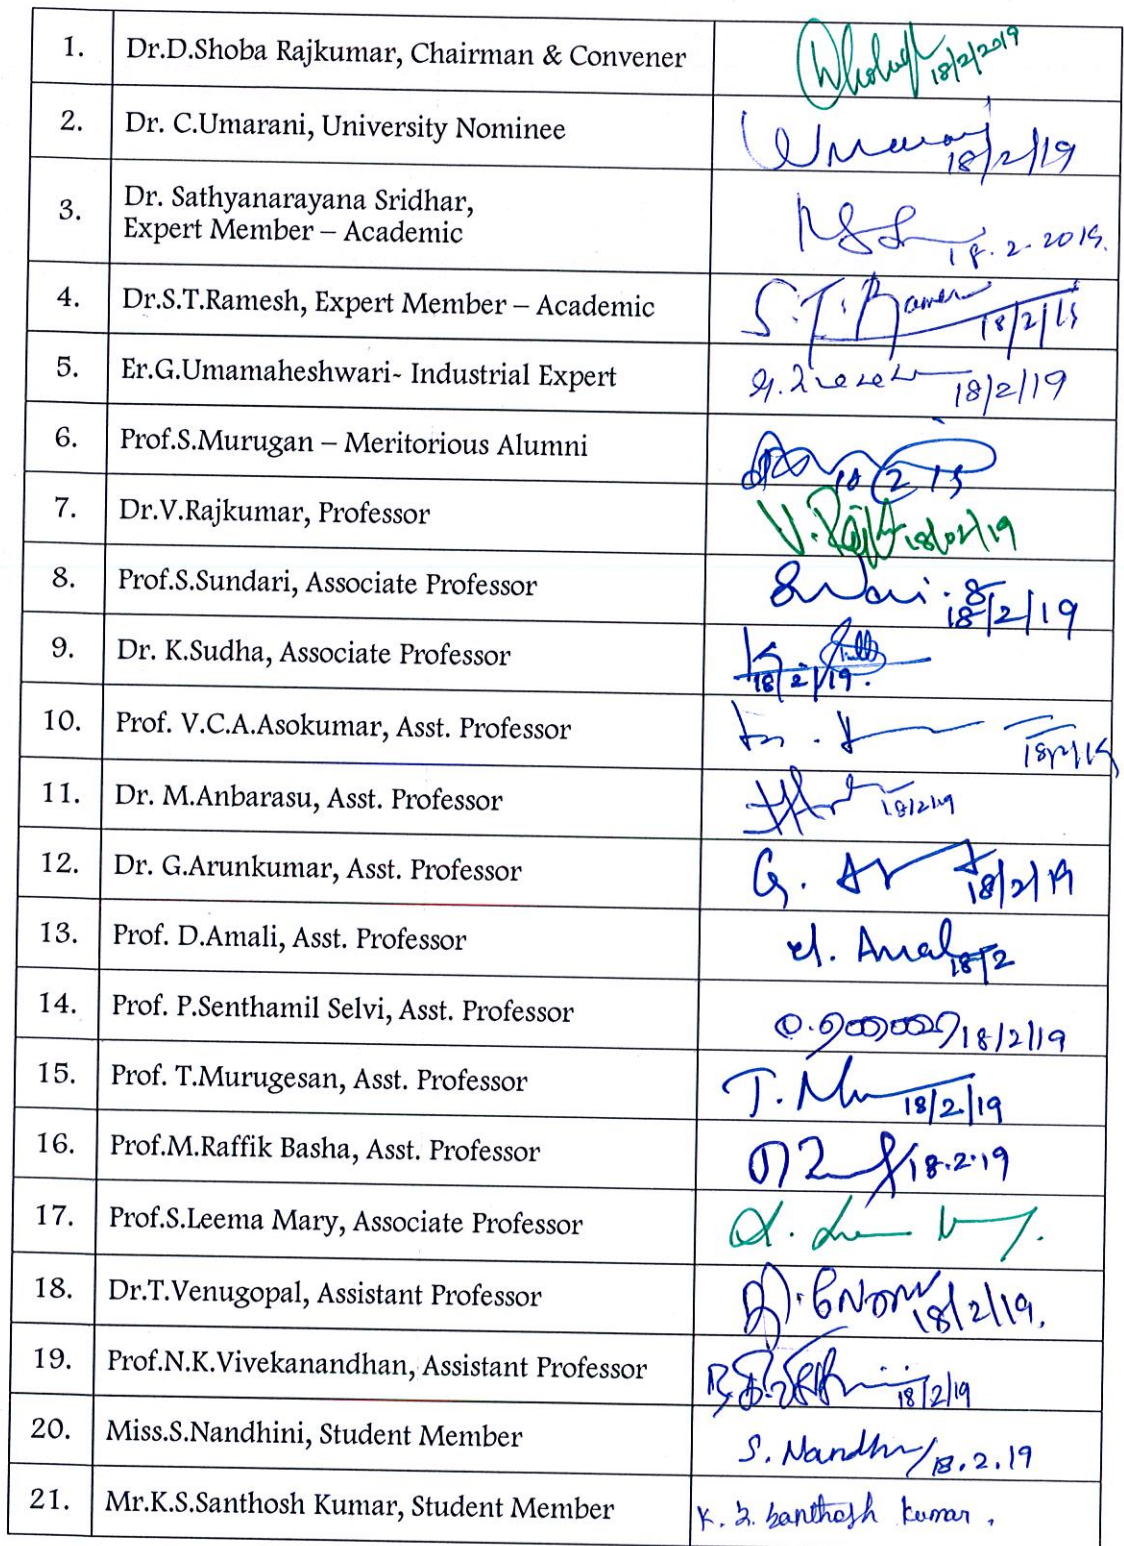 1. Dr.D.Shoba Rajkumar, Chairman & Convener 18/2/2019
2. Dr. C.Umarani, University Nominee 18/2/19
3. Dr. Sathyanarayana Sridhar,
Expert Member – Academic 18.2.2019.
4. Dr.S.T.Ramesh, Expert Member – Academic S.T. 18/2/19
5. Er.G.Umamaheshwari- Industrial Expert 18/2/19
6. Prof.S.Murugan – Meritorious Alumni
7. Dr.V.Rajkumar, Professor 18/02/19
8. Prof.S.Sundari, Associate Professor 18/2/19
9. Dr. K.Sudha, Associate Professor 18/2/19.
10. Prof. V.C.A.Asokumar, Asst. Professor 18/2/19
11. Dr. M.Anbarasu, Asst. Professor 18/2/19
12. Dr. G.Arunkumar, Asst. Professor 18/2/19
13. Prof. D.Amali, Asst. Professor 18/2
14. Prof. P.Senthamil Selvi, Asst. Professor 18/2/19
15. Prof. T.Murugesan, Asst. Professor 18/2/19
16. Prof.M.Raffik Basha, Asst. Professor 18.2.19
17. Prof.S.Leema Mary, Associate Professor
18. Dr.T.Venugopal, Assistant Professor 18/2/19.
19. Prof.N.K.Vivekanandhan, Assistant Professor 18/2/19
20. Miss.S.Nandhini, Student Member S. Nandhini 18.2.19
21. Mr.K.S.Santhosh Kumar, Student Member K. S. Santhosh Kumar.